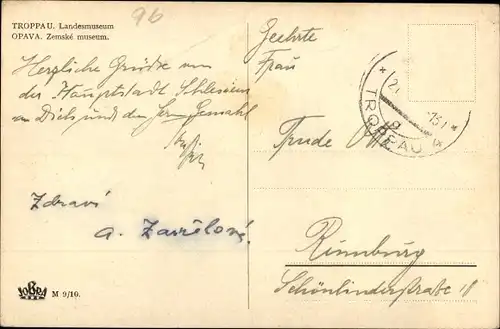 96
TROPPAU. Landesmuseum
OPAVA. Zemské museum.
Herzliche Grüße von
der Hauptstadt Schlesien
an Dich und den Herrn Gemahl
Zdraví
a. Zavřelová.
Geehrte
Frau
Trude
Rumburg
Schönlinderstraße
TROPPAU
M 9/10.